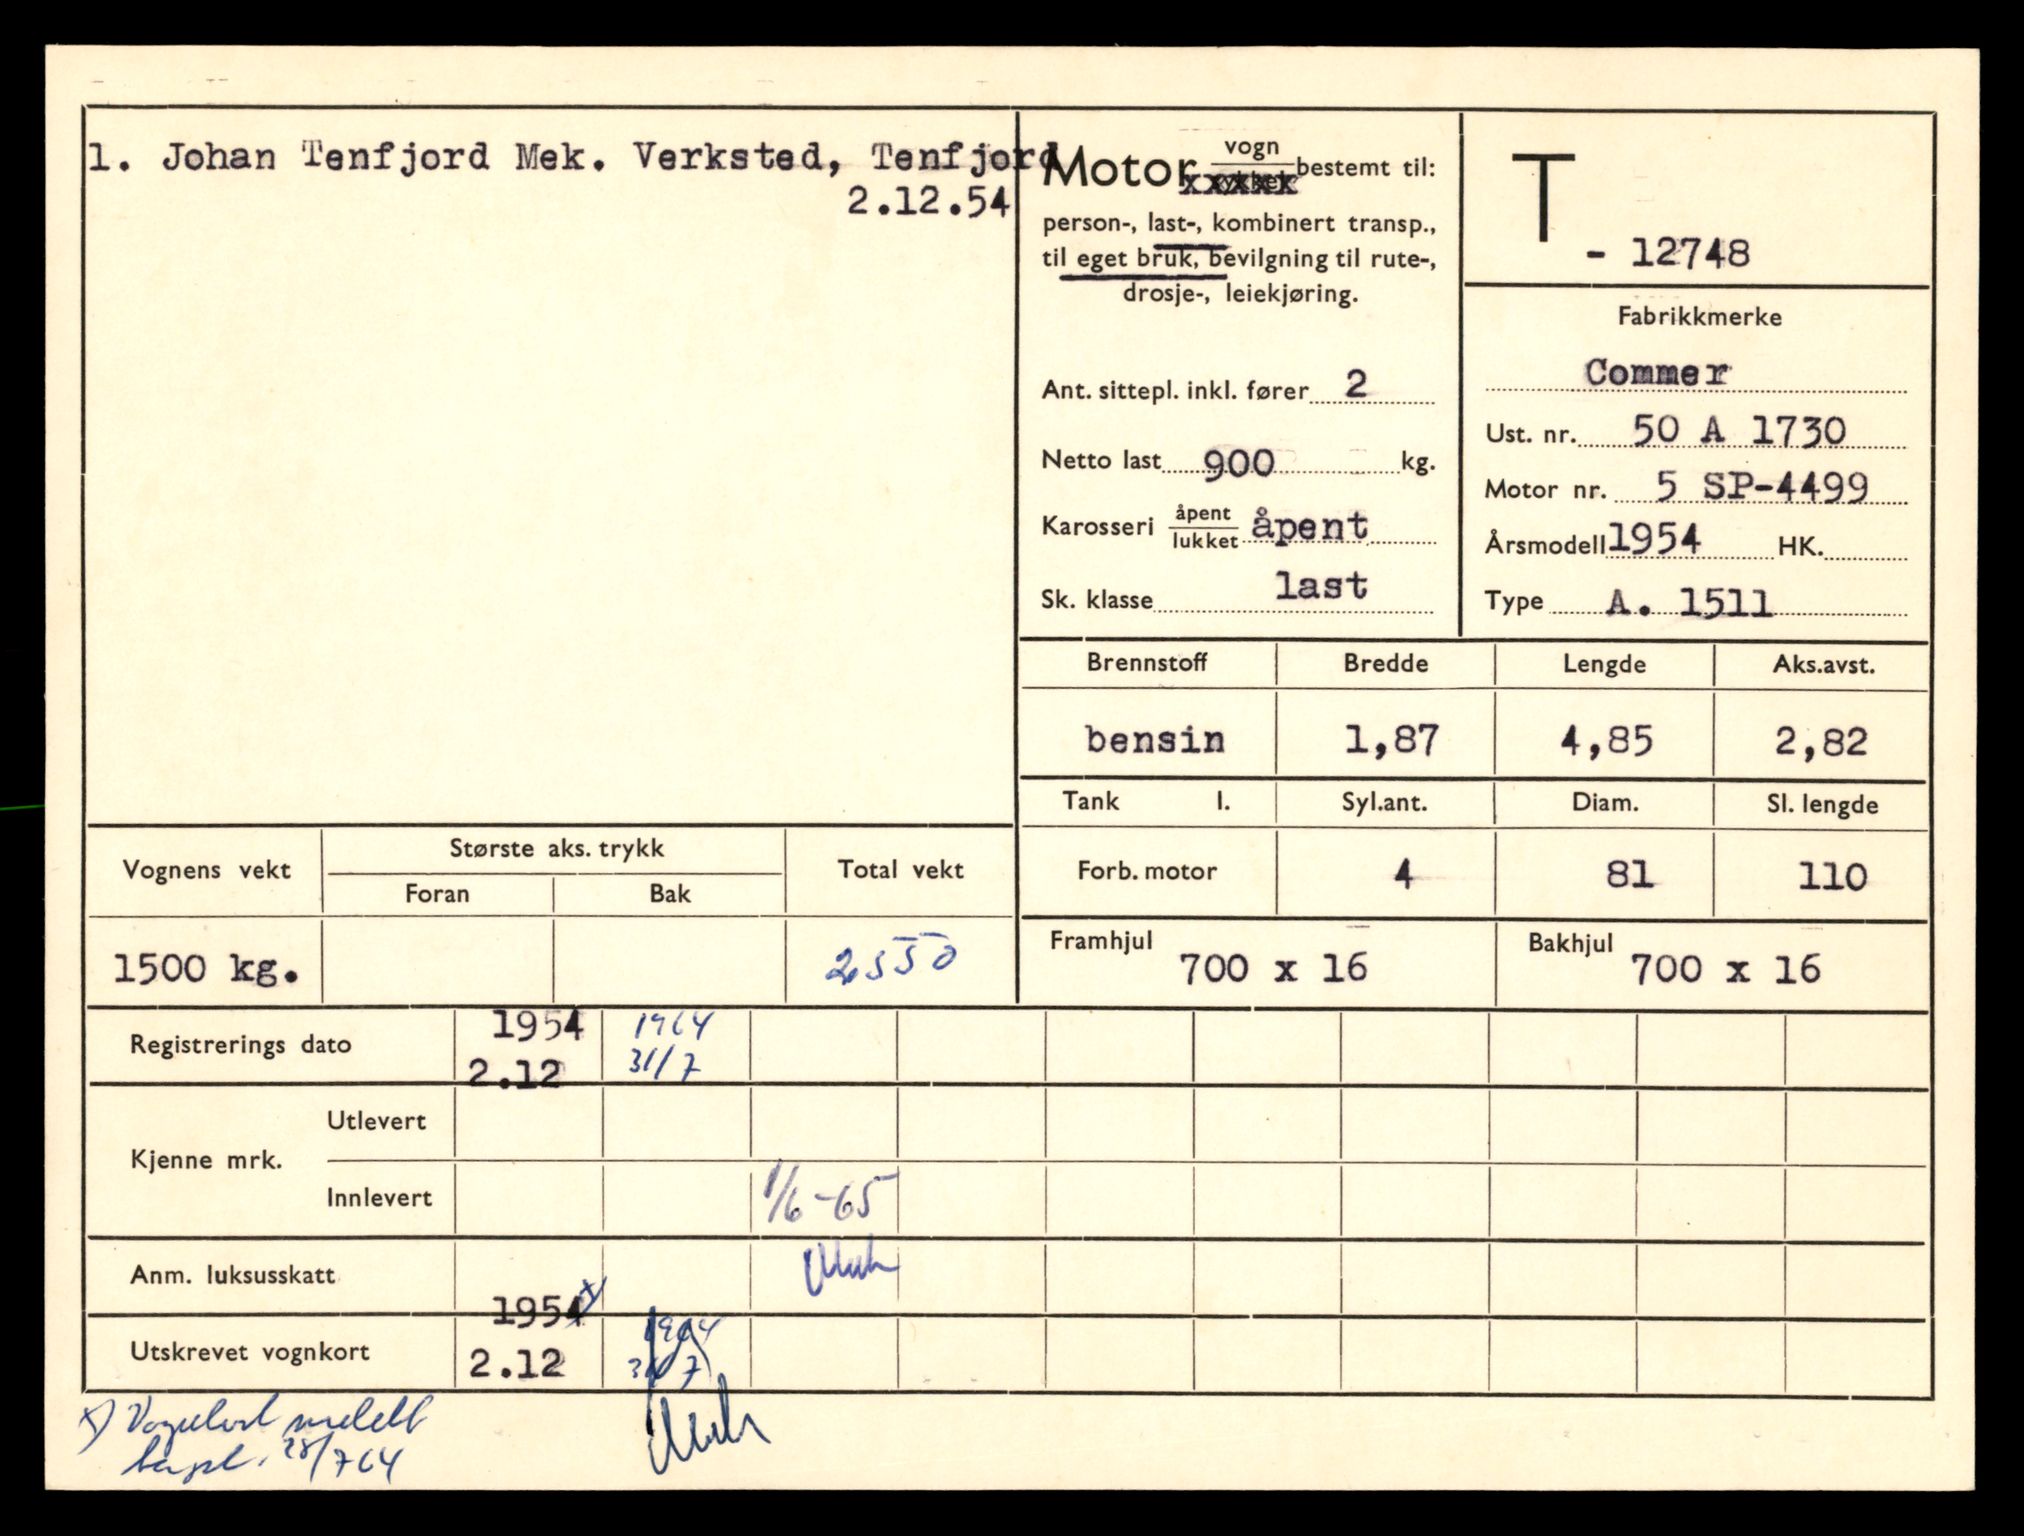 1. Johan Tenfjord Mek. Verksted, Tenfjord
2.12.54
Motor vogn bestemt til:
person-, last-, kombinert transp.,
til eget bruk, bevilgning til rute-,
drosje-, leiekjøring.
Ant. sittepl. inkl. fører 2
Netto last 900 kg.
Karosseri åpent lukket åpent
Sk. klasse last
T
- 12748
Fabrikkmerke
Commer
Ust. nr. 50 A 1730
Motor nr. 5 SP-4499
Årsmodell 1954 HK.
Type A. 1511
Brennstoff Bredde Lengde Aks.avst.
bensin 1,87 4,85 2,82
Tank l. Syl.ant. Diam. Sl. lengde
Forb. motor 4 81 110
Framhjul 700 x 16 Bakhjul 700 x 16
Vognens vekt Største aks. trykk Total vekt
Foran Bak
1500 kg. 2550
Registrerings dato 1954 1964
2.12 31/7
Kjenne mrk. Utlevert
Innlevert 1/6-65
Anm. luksusskatt
1954 x) 1964
Utskrevet vognkort 2.12 31/7
x) Vognkort meldt
tapt. 28/7 64